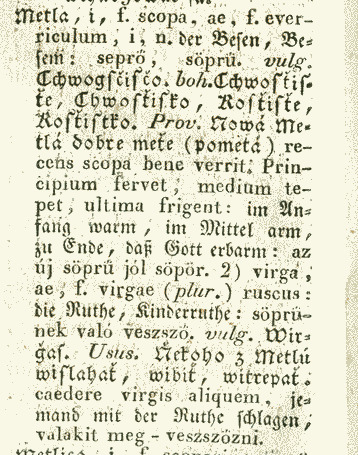 Metla, i, f. scopa, ae, f. ever-
riculum, i, n. der Besen, Be-
sem: seprő, söprü. vulg.
Cchwoǧsčisčo. boh. Cchwostis-
ťe, Chwostisko, Rostisťe,
Rostistko. Prov. Nowá Me-
tla dobre meťe (pometá) re-
cens scopa bene verrit. Prin-
cipium fervet, medium te-
pet, ultima frigent: im An-
fang warm, im Mittel arm,
zu Ende, daß Gott erbarm: az
új söprű jól söpör. 2) virga,
ae, f. virgae (plur.) ruscus:
die Ruthe, Kinderruthe: söprü-
nek való veszsző. vulg. Wir-
ǧas. Usus. Ňekoho z Metlú
wislahať, wibiť, witrepať:
caedere virgis aliquem, je-
mand mit der Ruthe schlagen,
valakit meg-veszszőzni.